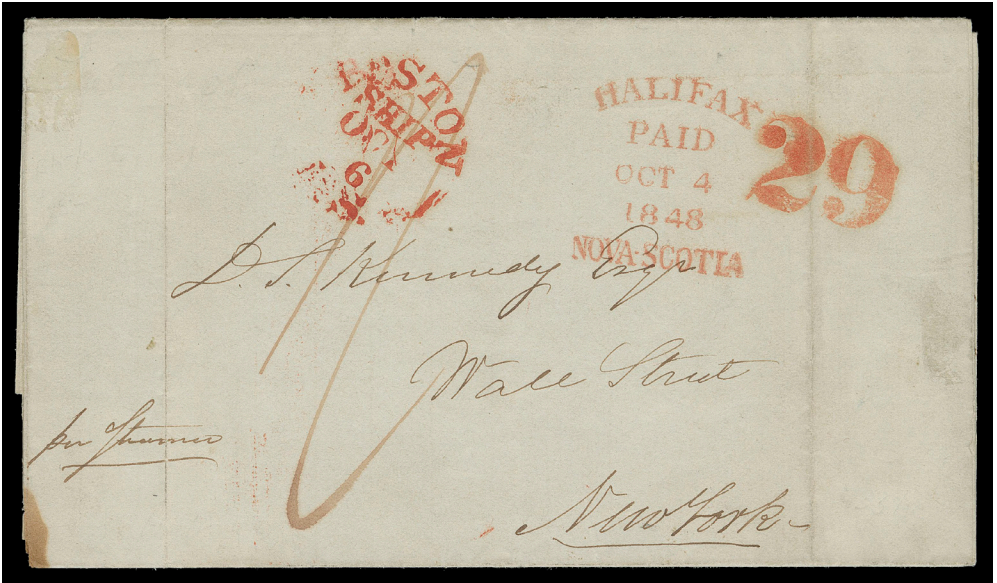 BOSTON
SHIP
OCT
6
HALIFAX
PAID
OCT 4
1848
NOVA-SCOTIA
29
D. S. Kennedy Esqr
Wall Street
per Steamer
New York